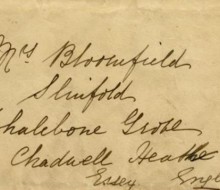 Mrs Bloomfield
Slinfold
Whalebone Grove
Chadwell Heath
Essex Engl